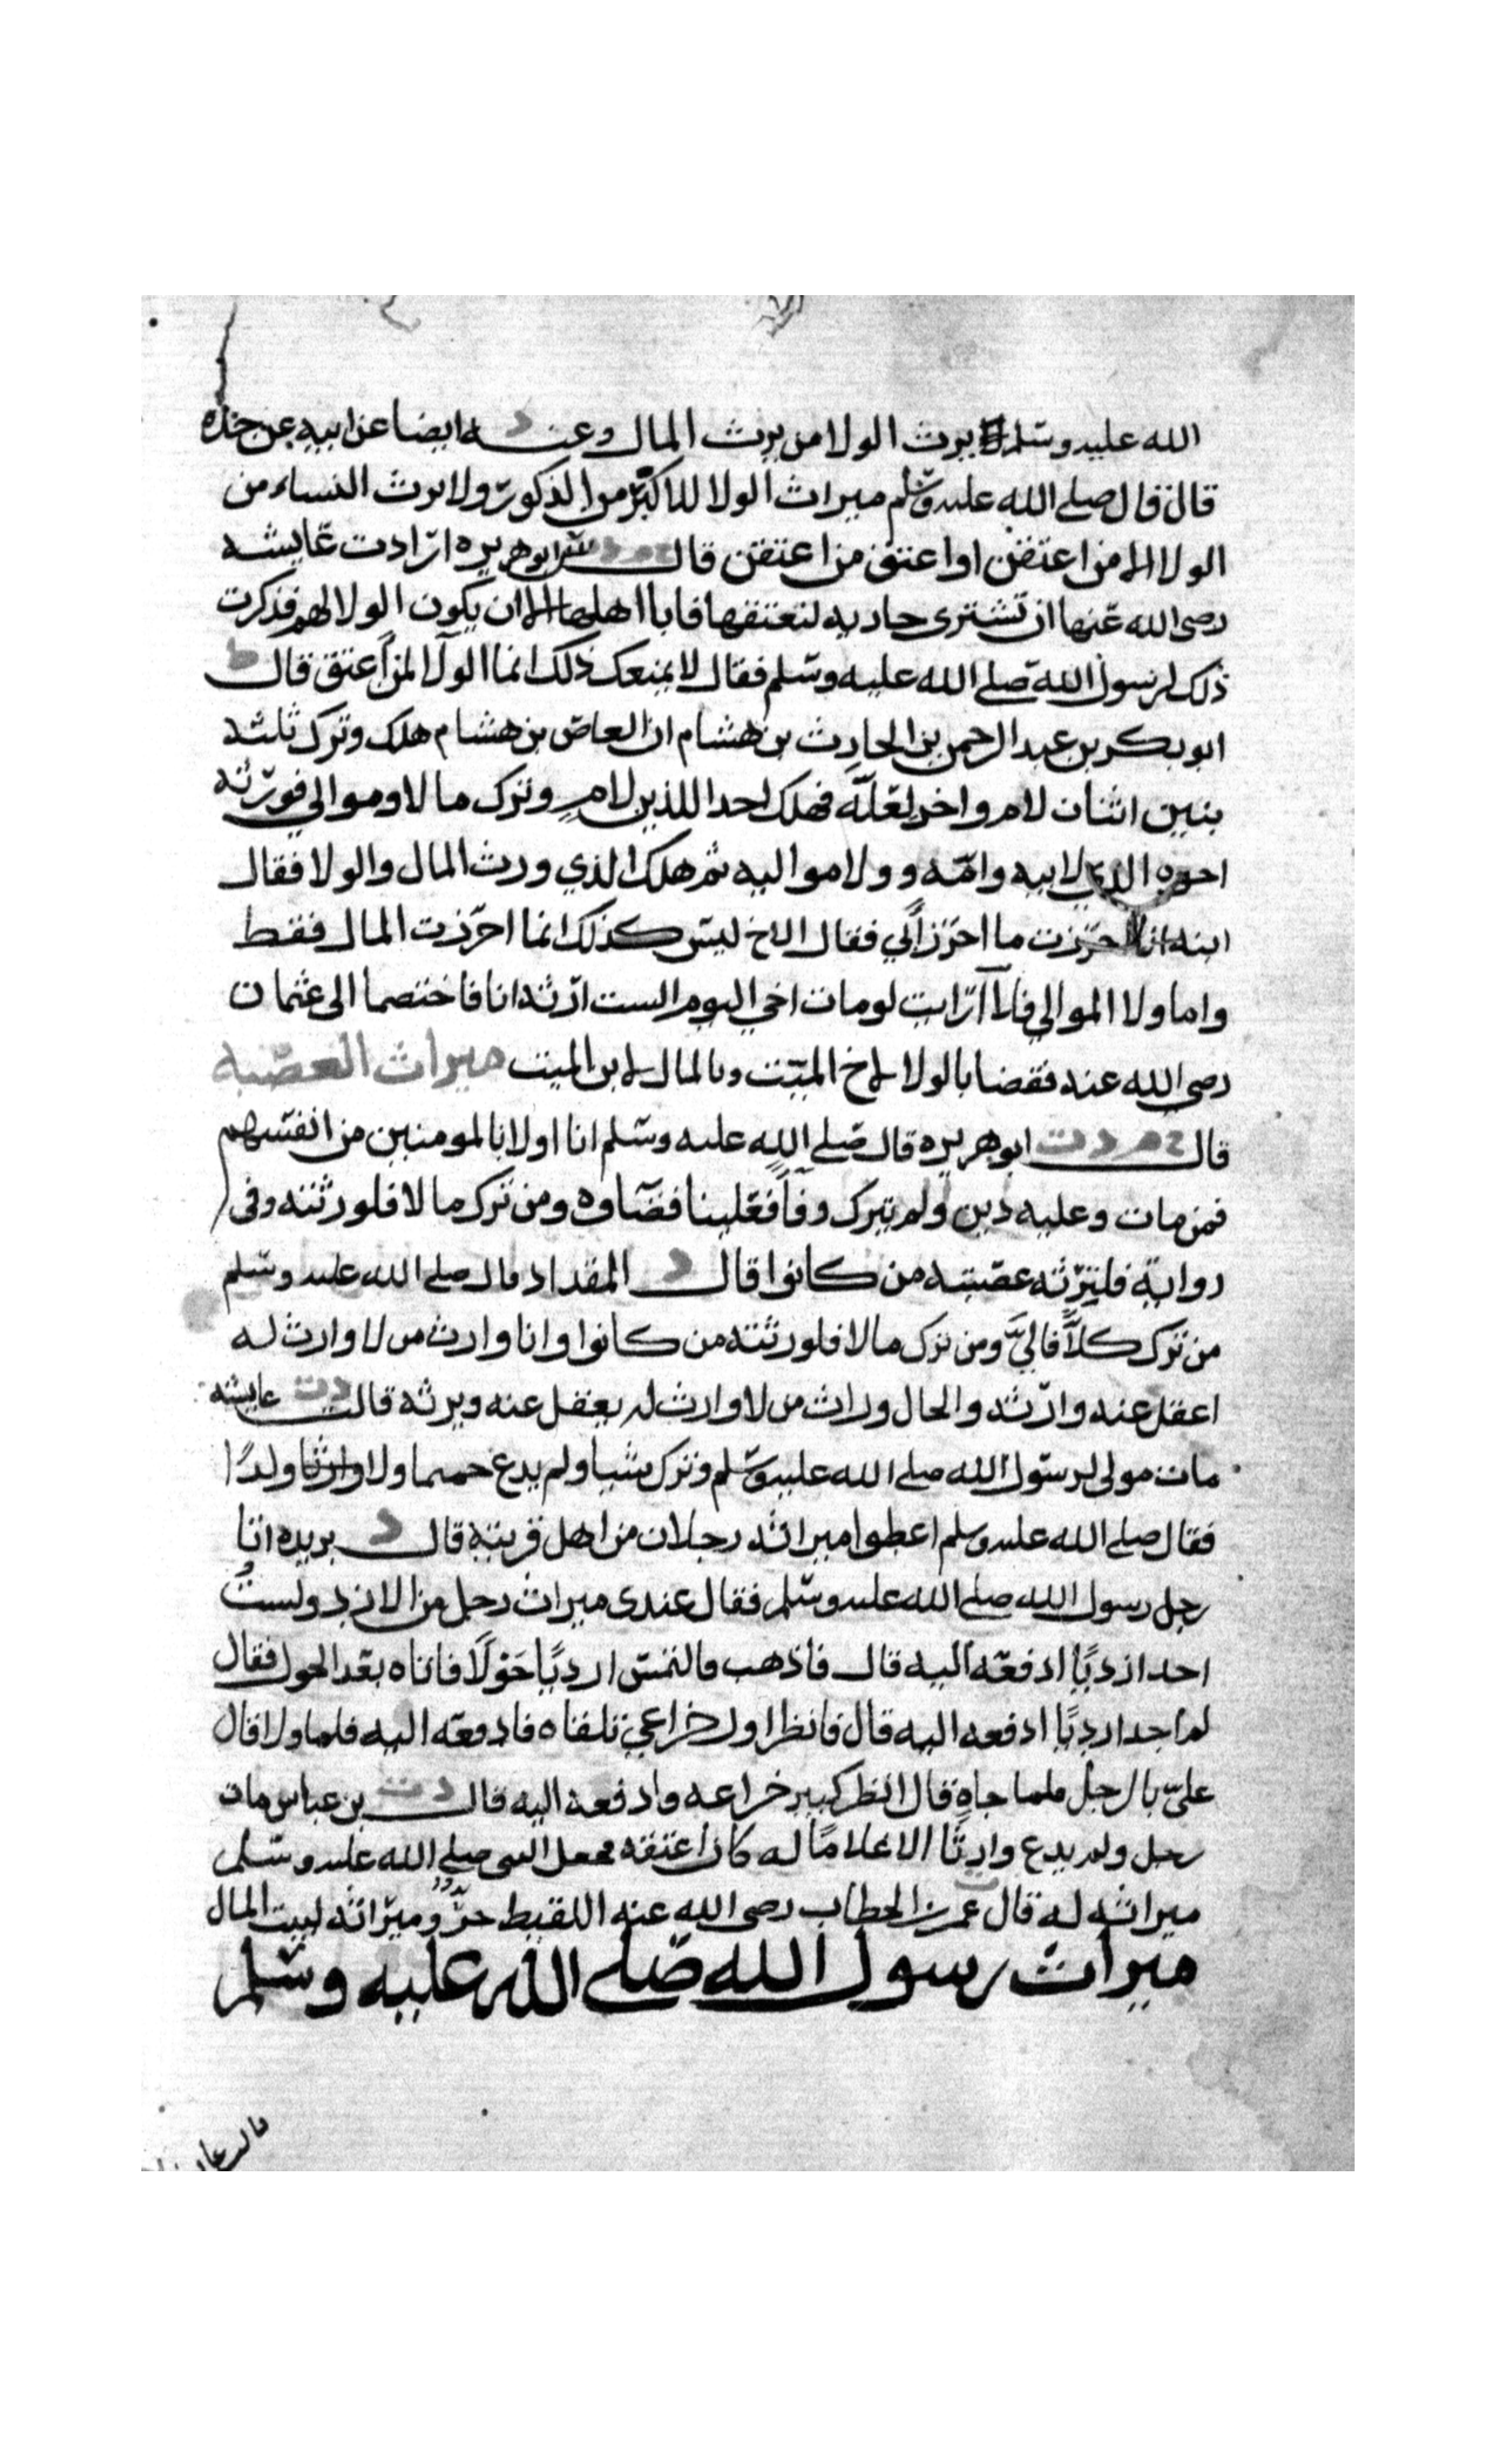 الله عليه وسلم يرث الولا من يرث المال وعنه د ايضا عن ابيه عن جده
قال قال صلى الله عليه وسلم ميراث الولا للاكبر من الذكور ولا يرث النساء من
الولا الا من اعتقن او اعتق من اعتقن قال خ م د ت ابو هريره ارادت عايشه
رضي الله عنها ان تشترى جاريه لتعتقها فابا اهلها الا ان يكون الولا لهم فذكرت
ذلك لرسول الله صلى الله عليه وسلم فقال لا يمنعك ذلك انما الولا لمن اعتق قال ط
ابو بكر بن عبد الرحمن بن الحارث بن هشام ان العاص بن هشام هلك وترك ثلثه
بنين اثنان لام واخر لعلة فهلك احد اللذين لام وترك مالا وموالي فورثه
اخوه الذي لابيه وامه وولا مواليه ثم هلك الذي ورث المال والولا فقال
ابنه انا احرزت ما احرز ابي فقال الاخ ليس كذلك انما احرزت المال فقط
واما ولا الموالي فلا ارايت لو مات اخي اليوم الست ارثه انا فاختصما الى عثمان
رضى الله عنه فقضا بالولا لاخ الميت وبالمال لابن الميت ميراث العصبه
قال خ م د ت ابو هريره قال صلى الله عليه وسلم انا اولا بالمومنين من انفسهم
فمن مات وعليه دين ولم يترك وفآ فعلينا قضآوه ومن ترك مالا فلورثته وفى
رواية فليرثه عصبته من كانوا قال د المقداد قال صلى الله عليه وسلم
من ترك كلاً فاليَّ ومن ترك مالا فلورثته من كانوا وانا وارث من لا وارث له
اعقل عنه وارثه والخال وراث من لا وارث له يعقل عنه ويرثه قالت د ت عايشه
مات مولى لرسول الله صلى الله عليه وسلم وترك شيا ولم يدع حميما ولا وارثا ولدًا
فقال صلى الله عليه وسلم اعطوا ميراثه رجلان من اهل قريته قال د بريده اتا
رجل رسول الله صلى الله عليه وسلم فقال عندى ميراث رجل من الازد ولستُ
اجد ازديًا ادفعه اليه قال فاذهب فالتمس ازديًا حَوْلًا فاتاه بعد الحول فقال
لم اجد ازديًا ادفعه اليه قال فانظر اول خزاعي تلقاه فادفعه اليه فلما ولا قال
عليّ بالرجل فلما جاه قال انظر كبير خزاعه وادفعه اليه قال د ت بن عباس مات
رجل ولم يدع وارثًا الا غلامًا له كان اعتقه فجعل النبى صلى الله عليه وسلم
ميراثه له قال عمر بن الخطاب رضى الله عنه اللقيط حرٌّ وميراثه لبيت المال
ميراث رسول الله صلى الله عليه وسلم